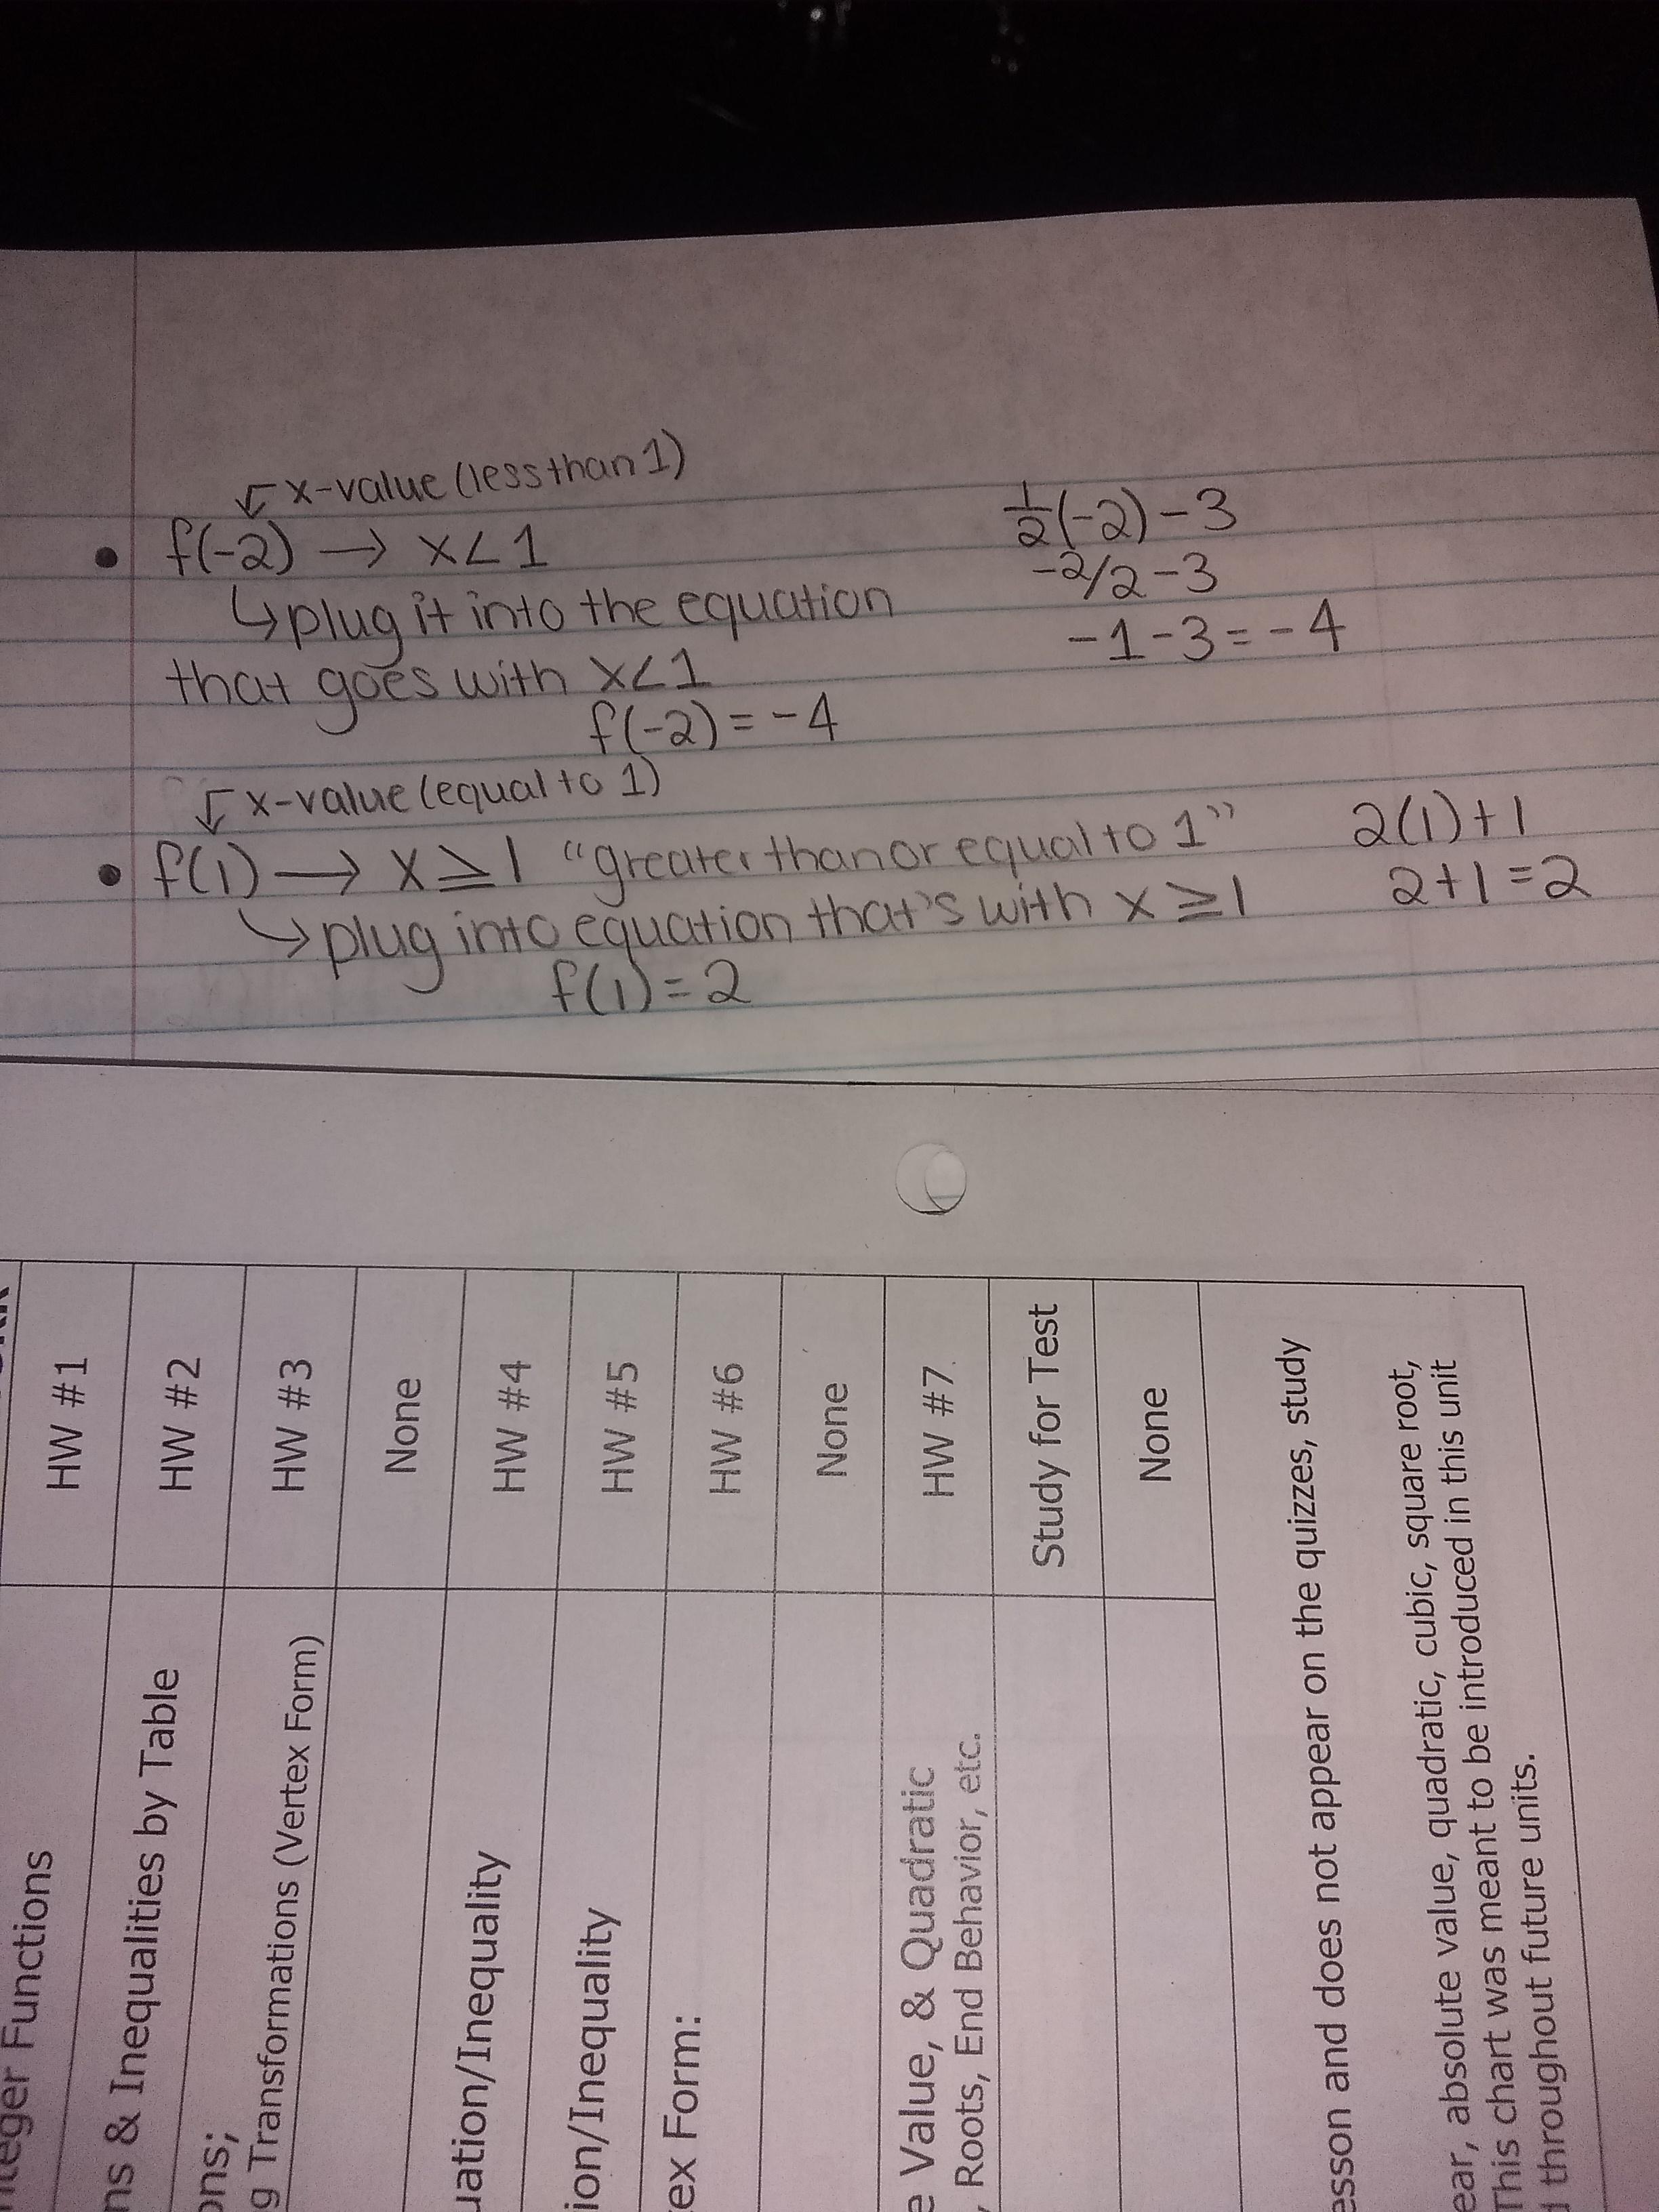 x-value (less than 1)
f(-2) → x<1
↳ plug it into the equation
that goes with x<1
f(-2) = -4
1/2(-2)-3
-2/2-3
-1-3=-4
x-value (equal to 1)
f(1) → x≥1 "greater than or equal to 1"
↳ plug into equation that's with x≥1
f(1)=2
2(1)+1
2+1=2
Functions
HW #1
& Inequalities by Table
HW #2
Transformations (Vertex Form)
HW #3
None
/Inequality
HW #4
/Inequality
HW #5
Form:
HW #6
None
Value, & Quadratic
Roots, End Behavior, etc.
HW #7
Study for Test
None
and does not appear on the quizzes, study
absolute value, quadratic, cubic, square root,
This chart was meant to be introduced in this unit
throughout future units.